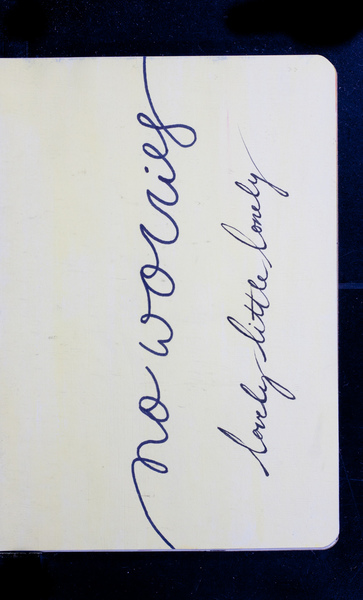 no worries
lovely little lonely